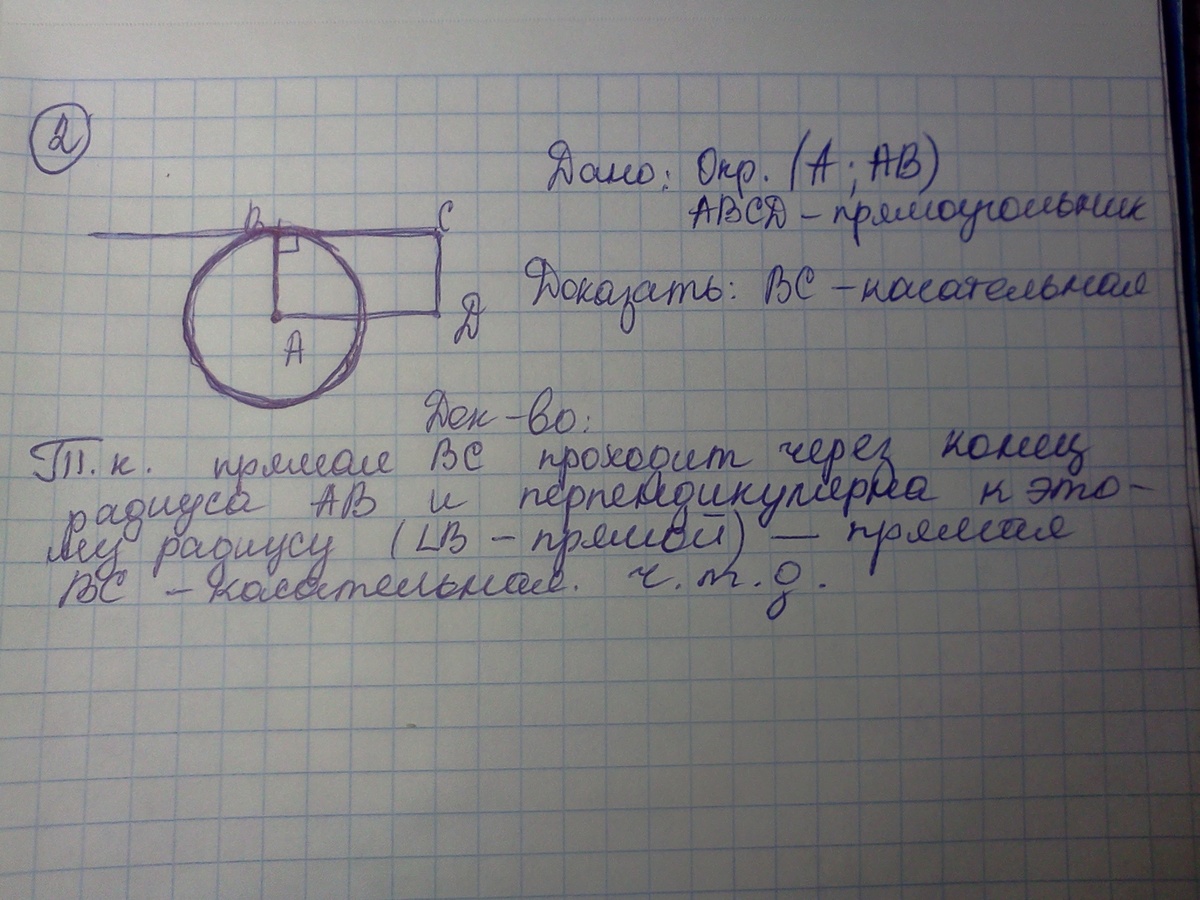 2
Дано: Окр. (A; AB)
ABCD - прямоугольник
B C
Доказать: BC - касательная
A D
Док-во:
Т.к. прямая BC проходит через конец
радиуса AB и перпендикулярна к это-
му радиусу (∠B - прямой) — прямая
BC - касательная. ч.т.д.